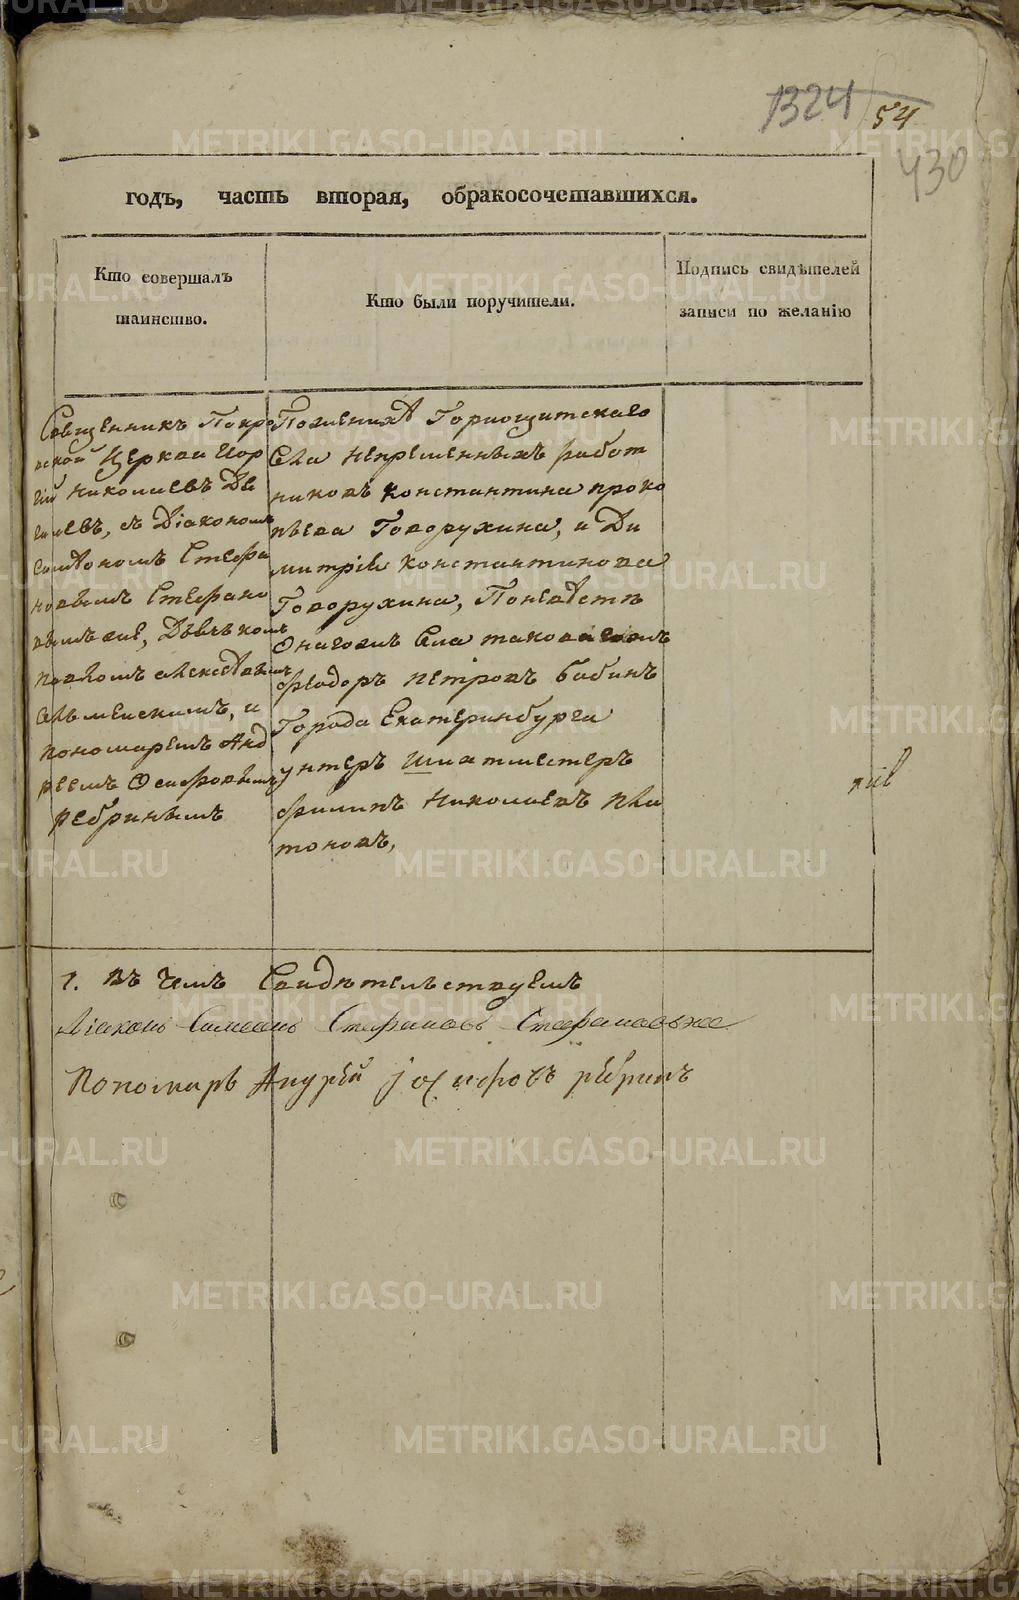 1324
54
430
годъ, часть вторая, обракосочетавшихся.
Кто совершалъ
таинство.
Кто были поручители.
Подпись свидѣтелей
записи по желанію
Священникъ Покро
вской Церкви Геор
гій Николаевъ
съ Діакономъ
Симеономъ Стефа
новымъ Стефано
вымъ же, Дьячкомъ
Павломъ Алексѣевымъ
и
пономаремъ Анд
реемъ Осиповымъ
ребринымъ
По женихѣ Горнощитскаго
села непременныхъ работ
никовъ Константина проко
пьева Говорухина, и Ди
митрія Константинова
Говорухина, По невѣстѣ
Онагожъ села
феодоръ петровъ бабинъ
Города Екатеринбурга
унтеръ Шихтместеръ
филипъ Николаевъ пла
тоновъ,
1. въ чемъ Свидѣтельствуемъ
Діаконъ Симеонъ Стефановъ Стефановъ же
Пономарь Андрей Іосифовъ ребринъ
METRIKI.GASO-URAL.RU